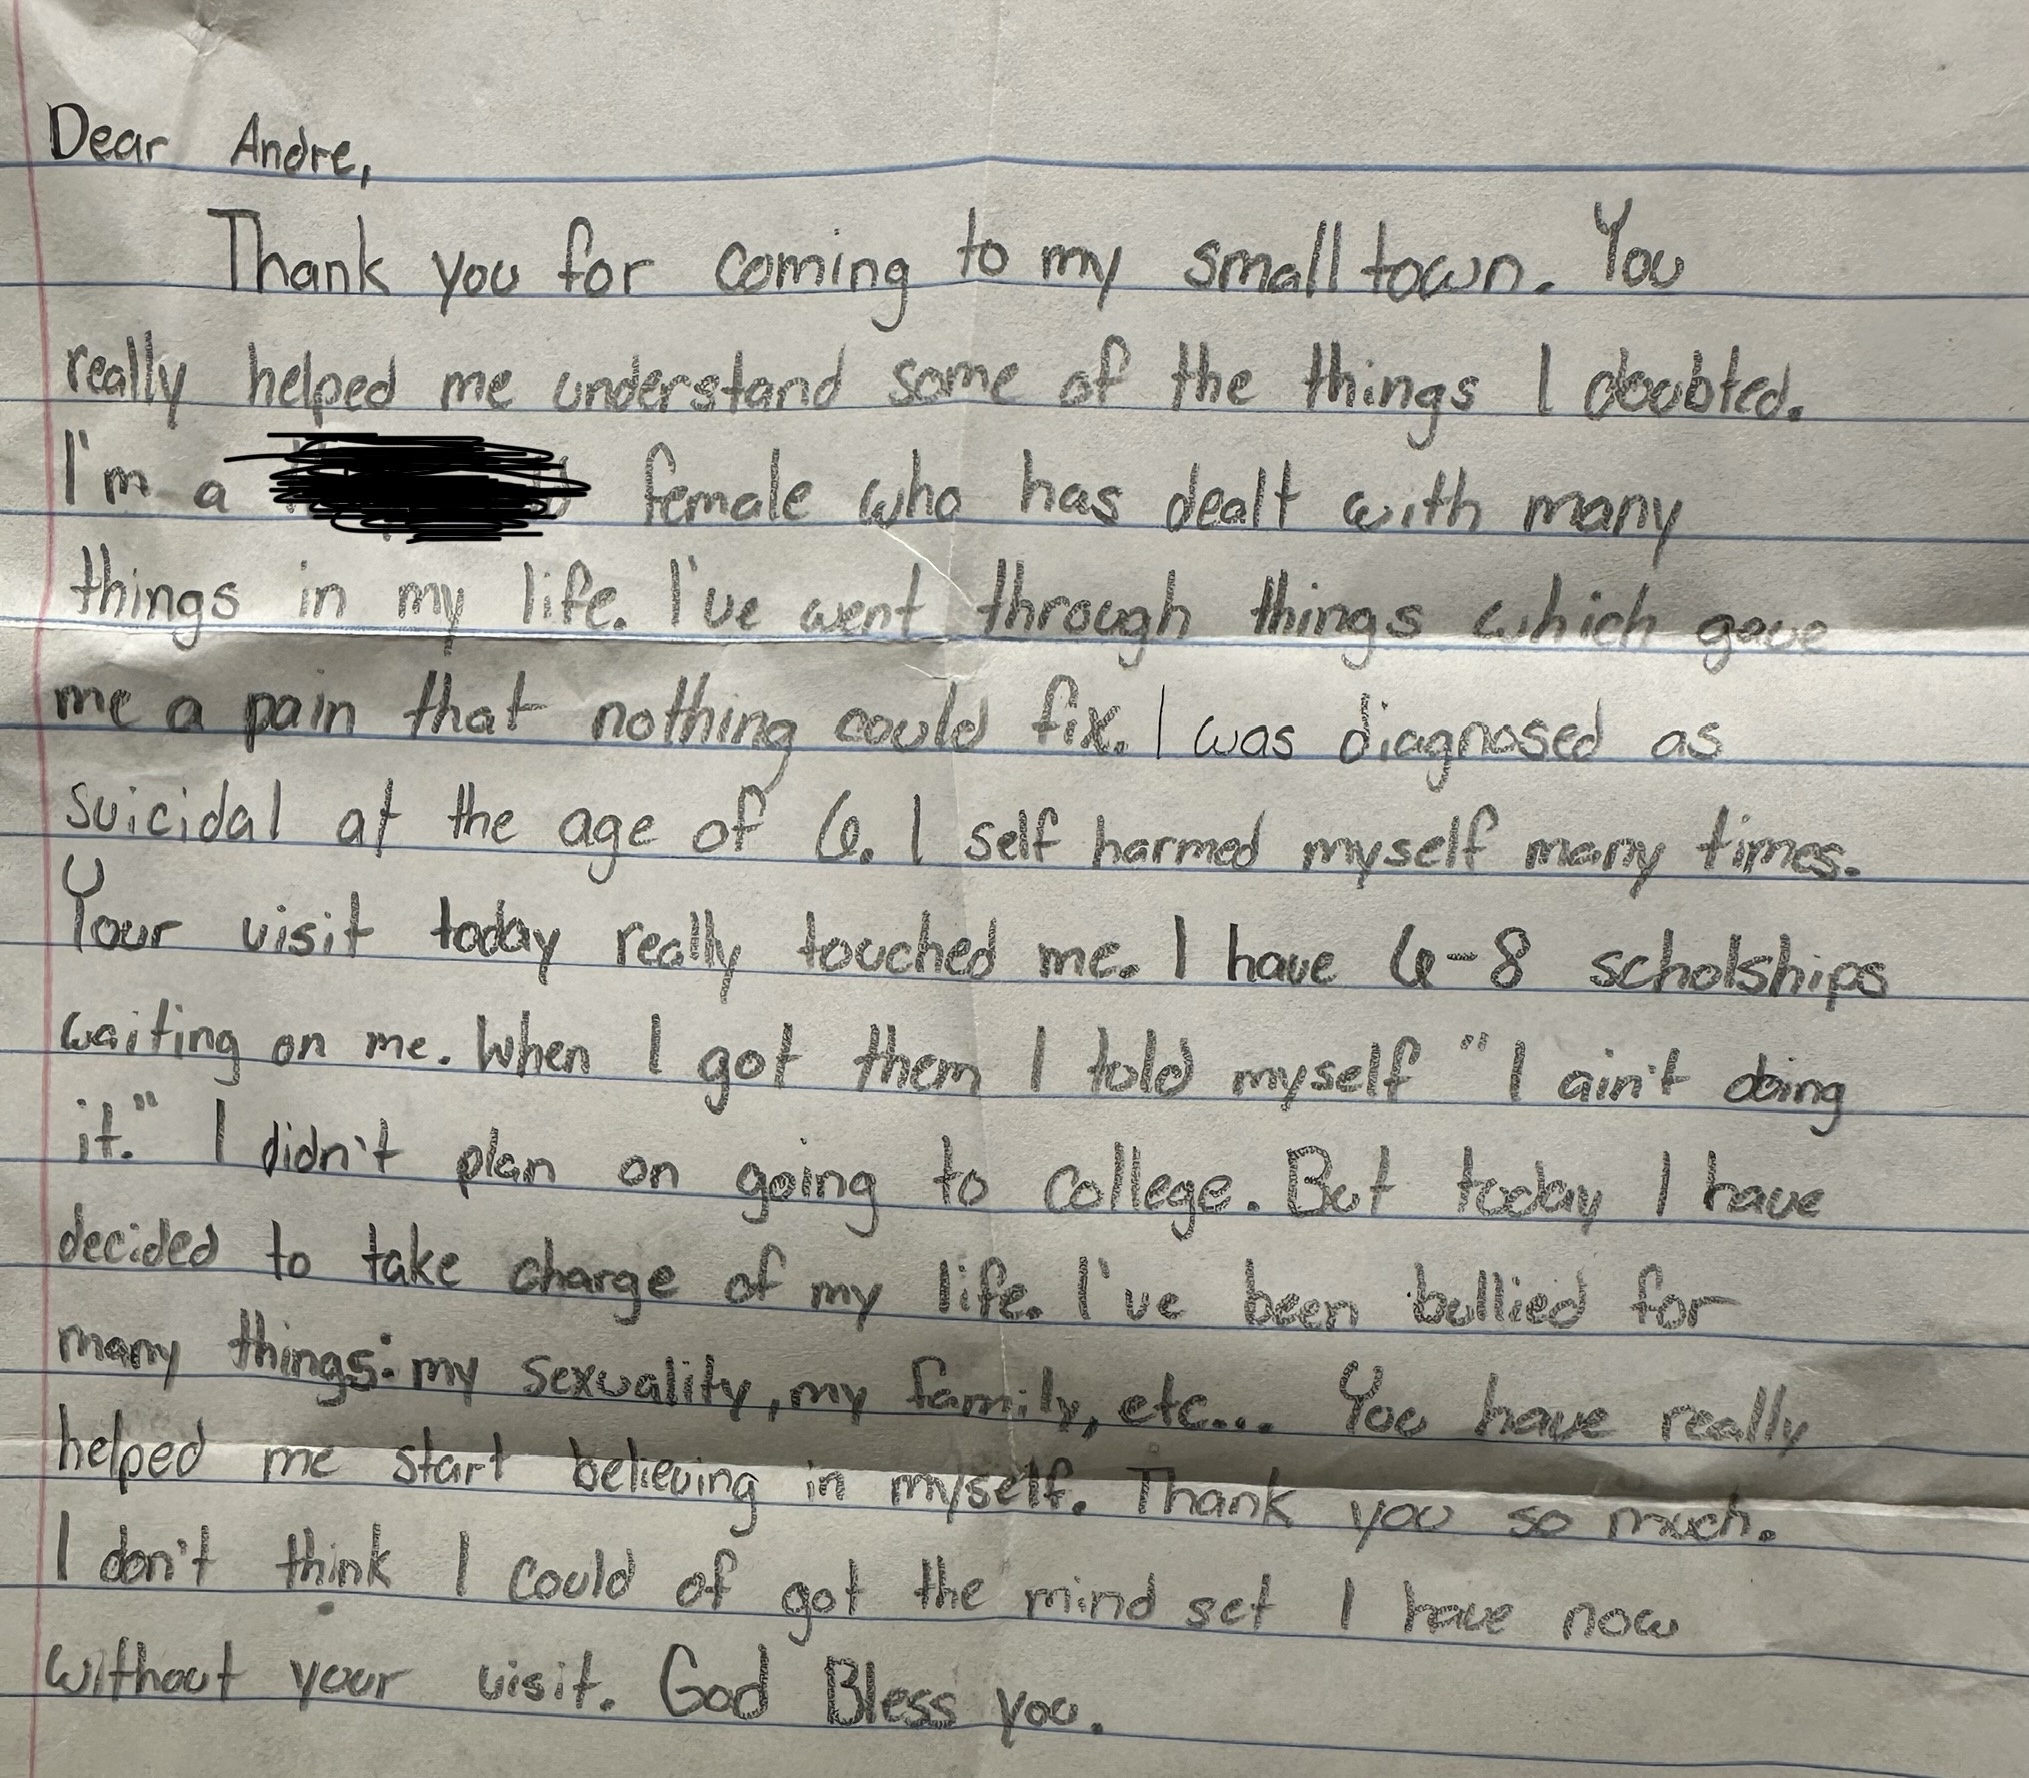 Dear Andre,
Thank you for coming to my small town. You
really helped me understand some of the things I doubted.
I'm a female who has dealt with many
things in my life. I've went through things which gave
me a pain that nothing could fix. I was diagnosed as
suicidal at the age of 6. I self harmed myself many times.
Your visit today really touched me. I have 6-8 scholships
waiting on me. When I got them I told myself "I ain't doing
it." I didn't plan on going to college. But today I have
decided to take charge of my life. I've been bullied for
many things: my sexuality, my family, etc... You have really
helped me start believing in myself. Thank you so much.
I don't think I could of got the mind set I have now
without your visit. God Bless you.